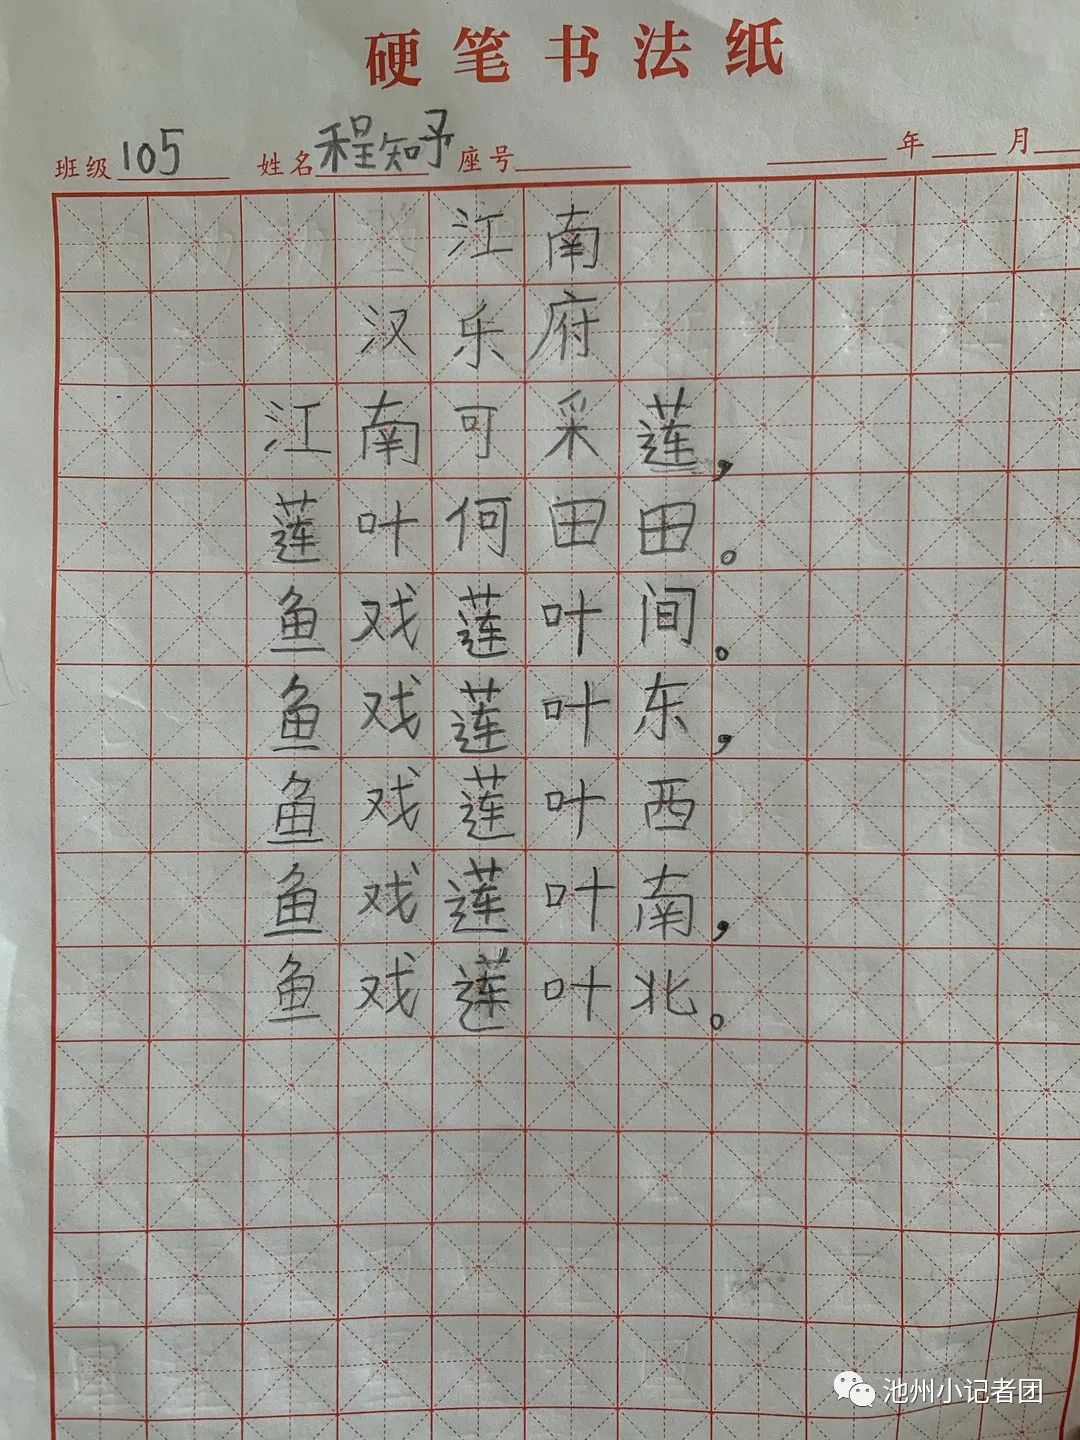 硬笔书法纸
班级 105 姓名 程知予 座号 年 月
江南
汉乐府
江南可采莲，
莲叶何田田。
鱼戏莲叶间。
鱼戏莲叶东，
鱼戏莲叶西
鱼戏莲叶南，
鱼戏莲叶北。
池州小记者团